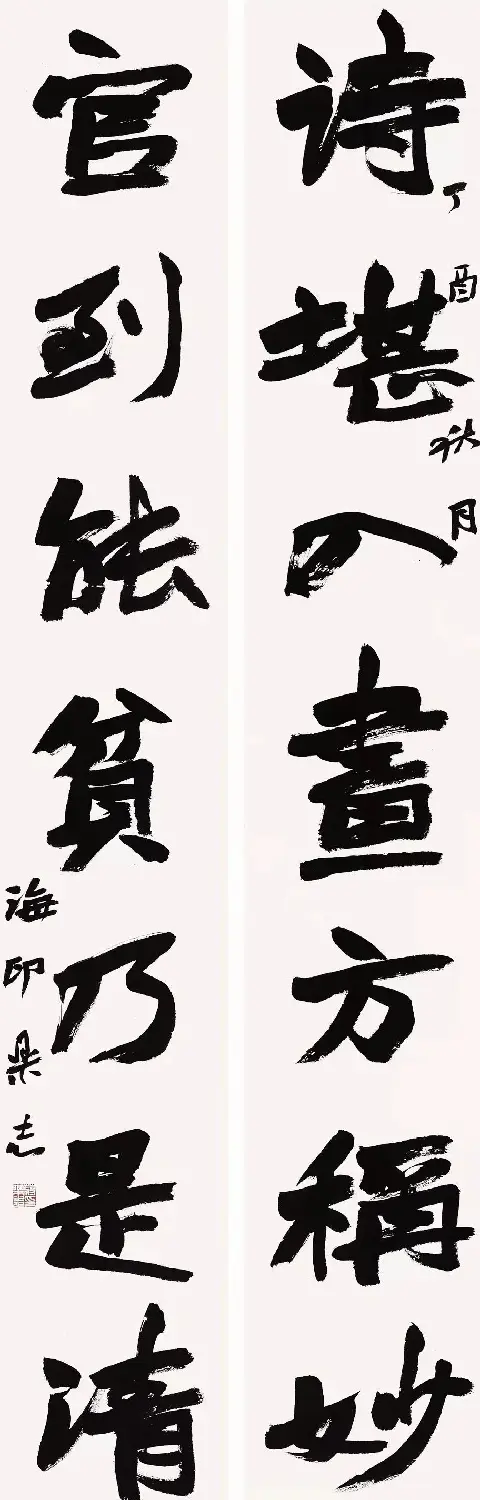 詩堪入畫方稱妙
丁酉秋月
官到能貧乃是清
海印梁志